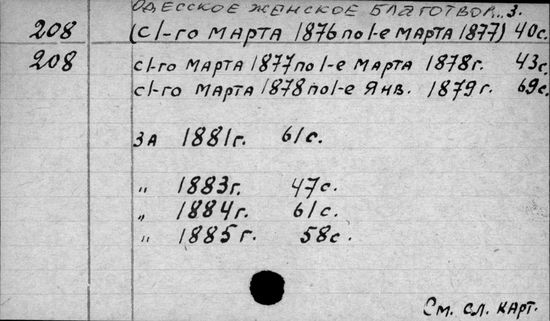 ОДЕССКОЕ ЖЕНСКОЕ БЛАГОТВОР... 3.
208 (с 1-го МАРТА 1876 по 1-е МАРТА 1877) 40с.
208 с 1-го МАРТА 1877 по 1-е МАРТА 1878г. 43с.
с 1-го МАРТА 1878 по 1-е Янв. 1879г. 69с.
ЗА 1881г. 61с.
„ 1883г. 47с.
„ 1884г. 61с.
„ 1885г. 58с.
См. сл. карт.